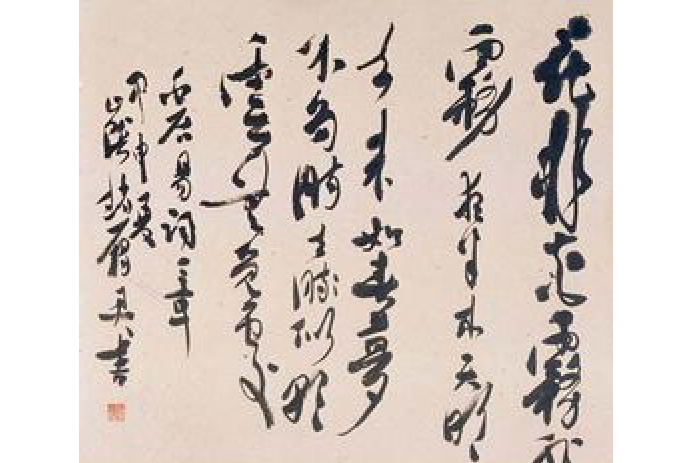 花非花霧非
霧夜半來天明
去來如春夢
不多時去似朝
雲無覓處
白居易詞一章
甲申夏
山陰書